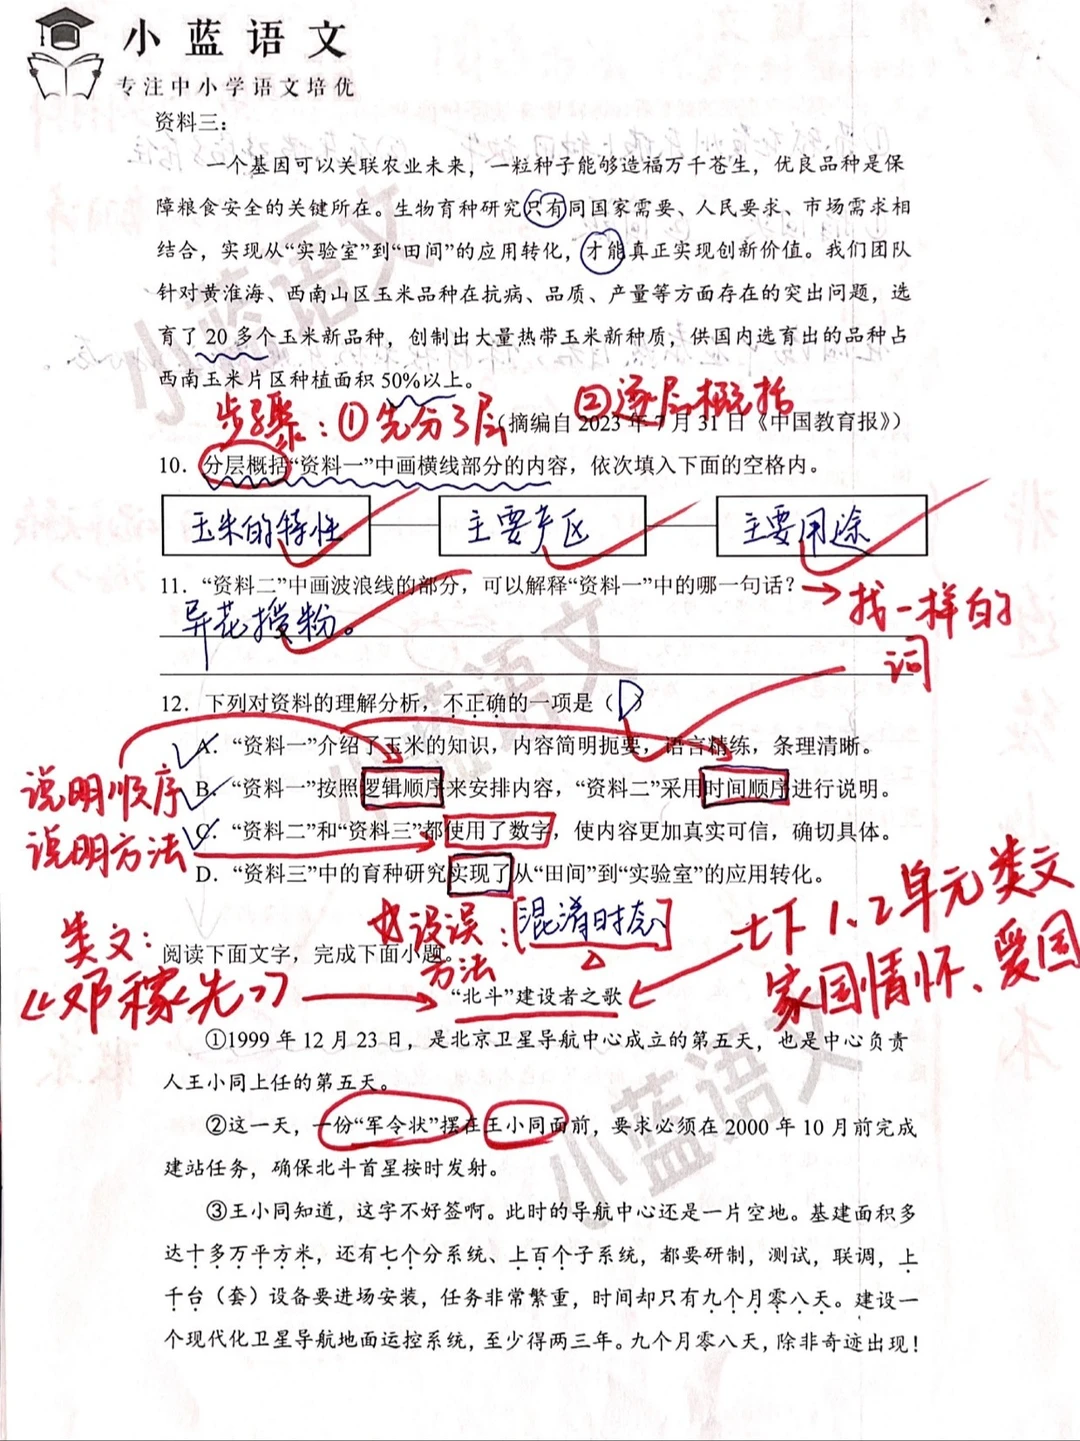 小蓝语文
专注中小学语文培优
资料三：
一个基因可以关联农业未来，一粒种子能够造福万千苍生，优良品种是保
障粮食安全的关键所在。生物育种研究只有同国家需要、人民要求、市场需求相
结合，实现从“实验室”到“田间”的应用转化，才能真正实现创新价值。我们团队
针对黄淮海、西南山区玉米品种在抗病、品质、产量等方面存在的突出问题，选
育了 20 多个玉米新品种，创制出大量热带玉米新种质，供国内选育出的品种占
西南玉米片区种植面积 50%以上。
步骤：①先分3层 ②逐层概括
（摘编自 2023 年 7 月 31 日《中国教育报》）
10．分层概括“资料一”中画横线部分的内容，依次填入下面的空格内。
玉米的特性 主要产区 主要用途
11．“资料二”中画波浪线的部分，可以解释“资料一”中的哪一句话？
→找一样的
词
异花授粉。
12．下列对资料的理解分析，不正确的一项是（D）
A．“资料一”介绍了玉米的知识，内容简明扼要，语言精练，条理清晰。
说明顺序
B．“资料一”按照逻辑顺序来安排内容，“资料二”采用时间顺序进行说明。
说明方法
C．“资料二”和“资料三”都使用了数字，使内容更加真实可信，确切具体。
D．“资料三”中的育种研究实现了从“田间”到“实验室”的应用转化。
设误：[混淆时态]
方法
七下1、2单元类文
家国情怀、爱国
类文：
《邓稼先》
阅读下面文字，完成下面小题。
“北斗”建设者之歌
①1999 年 12 月 23 日，是北京卫星导航中心成立的第五天，也是中心负责
人王小同上任的第五天。
②这一天，一份“军令状”摆在王小同面前，要求必须在 2000 年 10 月前完成
建站任务，确保北斗首星按时发射。
③王小同知道，这字不好签啊。此时的导航中心还是一片空地。基建面积多
达十多万平方米，还有七个分系统、上百个子系统，都要研制，测试，联调，上
千台（套）设备要进场安装，任务非常繁重，时间却只有九个月零八天。建设一
个现代化卫星导航地面运控系统，至少得两三年。九个月零八天，除非奇迹出现！
小蓝语文
小蓝语文
小蓝语文